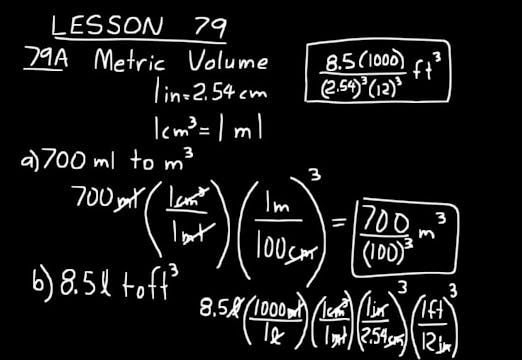 LESSON 79
79A Metric Volume
1 in = 2.54 cm
1 cm³ = 1 ml
8.5(1000) / (2.54)³(12)³ ft³
a) 700 ml to m³
700 ml (1 cm³ / 1 ml) (1 m / 100 cm)³ = 700 / (100)³ m³
b) 8.5 l to ft³
8.5 l (1000 ml / 1 l) (1 cm³ / 1 ml) (1 in / 2.54 cm)³ (1 ft / 12 in)³